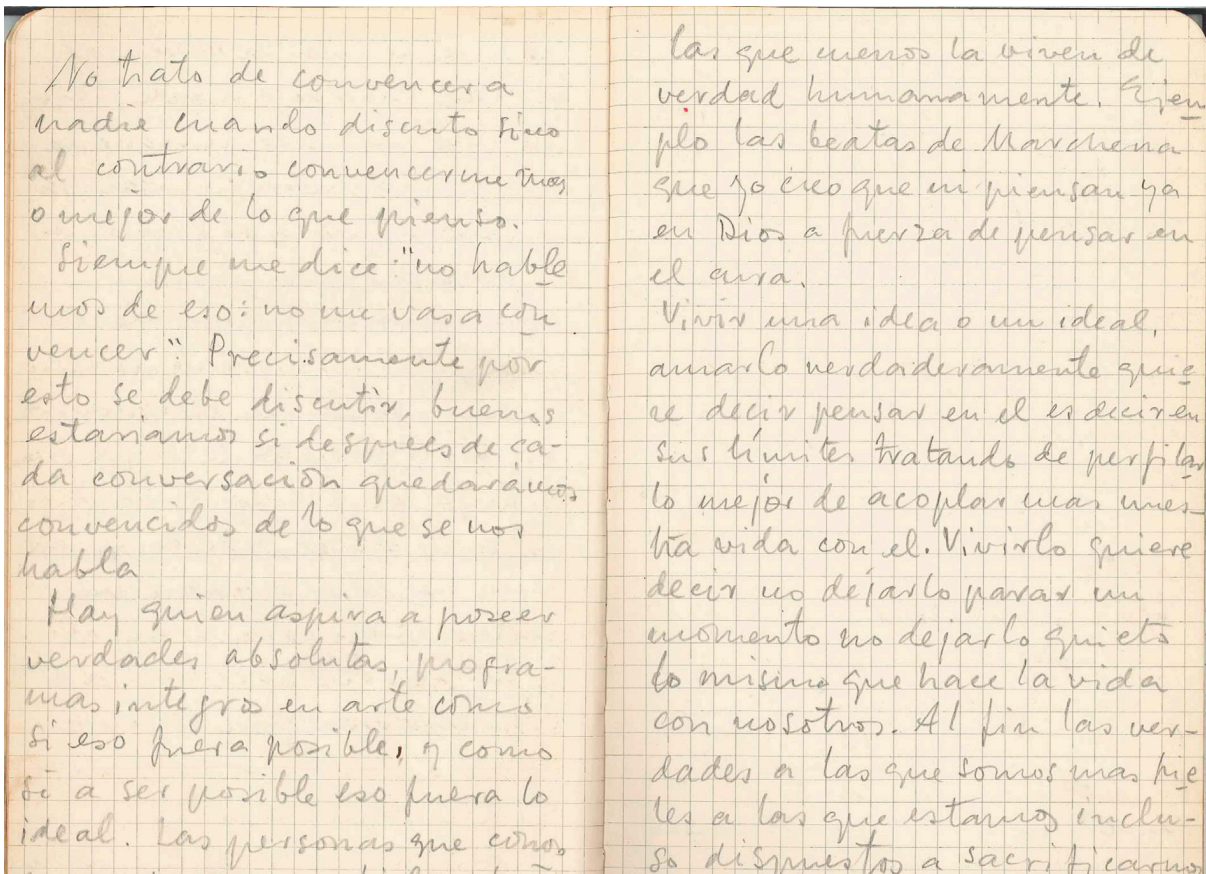 No trato de convencer a
nadie cuando discuto sino
al contrario convencerme mas
o mejor de lo que pienso.
Siempre me dice: "no hable
mos de eso: no me vas a con
vencer". Precisamente por
esto se debe discutir, buenos
estariamos si despues de ca-
da conversación quedaramos
convencidos de lo que se nos
habla
Hay quien aspira a poseer
verdades absolutas, progra-
mas integros en arte como
si eso fuera posible, y como
si a ser posible eso fuera lo
ideal. Las personas que
las que menos la viven de
verdad humanamente. Ejem
plo las beatas de Marchena
que yo creo que ni piensan ya
en Dios a fuerza de pensar en
el cura.
Vivir una idea o un ideal,
amarlo verdaderamente quie
re decir pensar en el es decir en
sus límites tratando de perfilar
lo mejor de acoplar mas nues-
tra vida con el. Vivirlo quiere
decir no dejarlo parar un
momento no dejarlo quieto
lo mismo que hace la vida
con nosotros. Al fin las ver-
dades a las que somos mas fie
les a las que estamos inclu-
so dispuestos a sacrificarnos